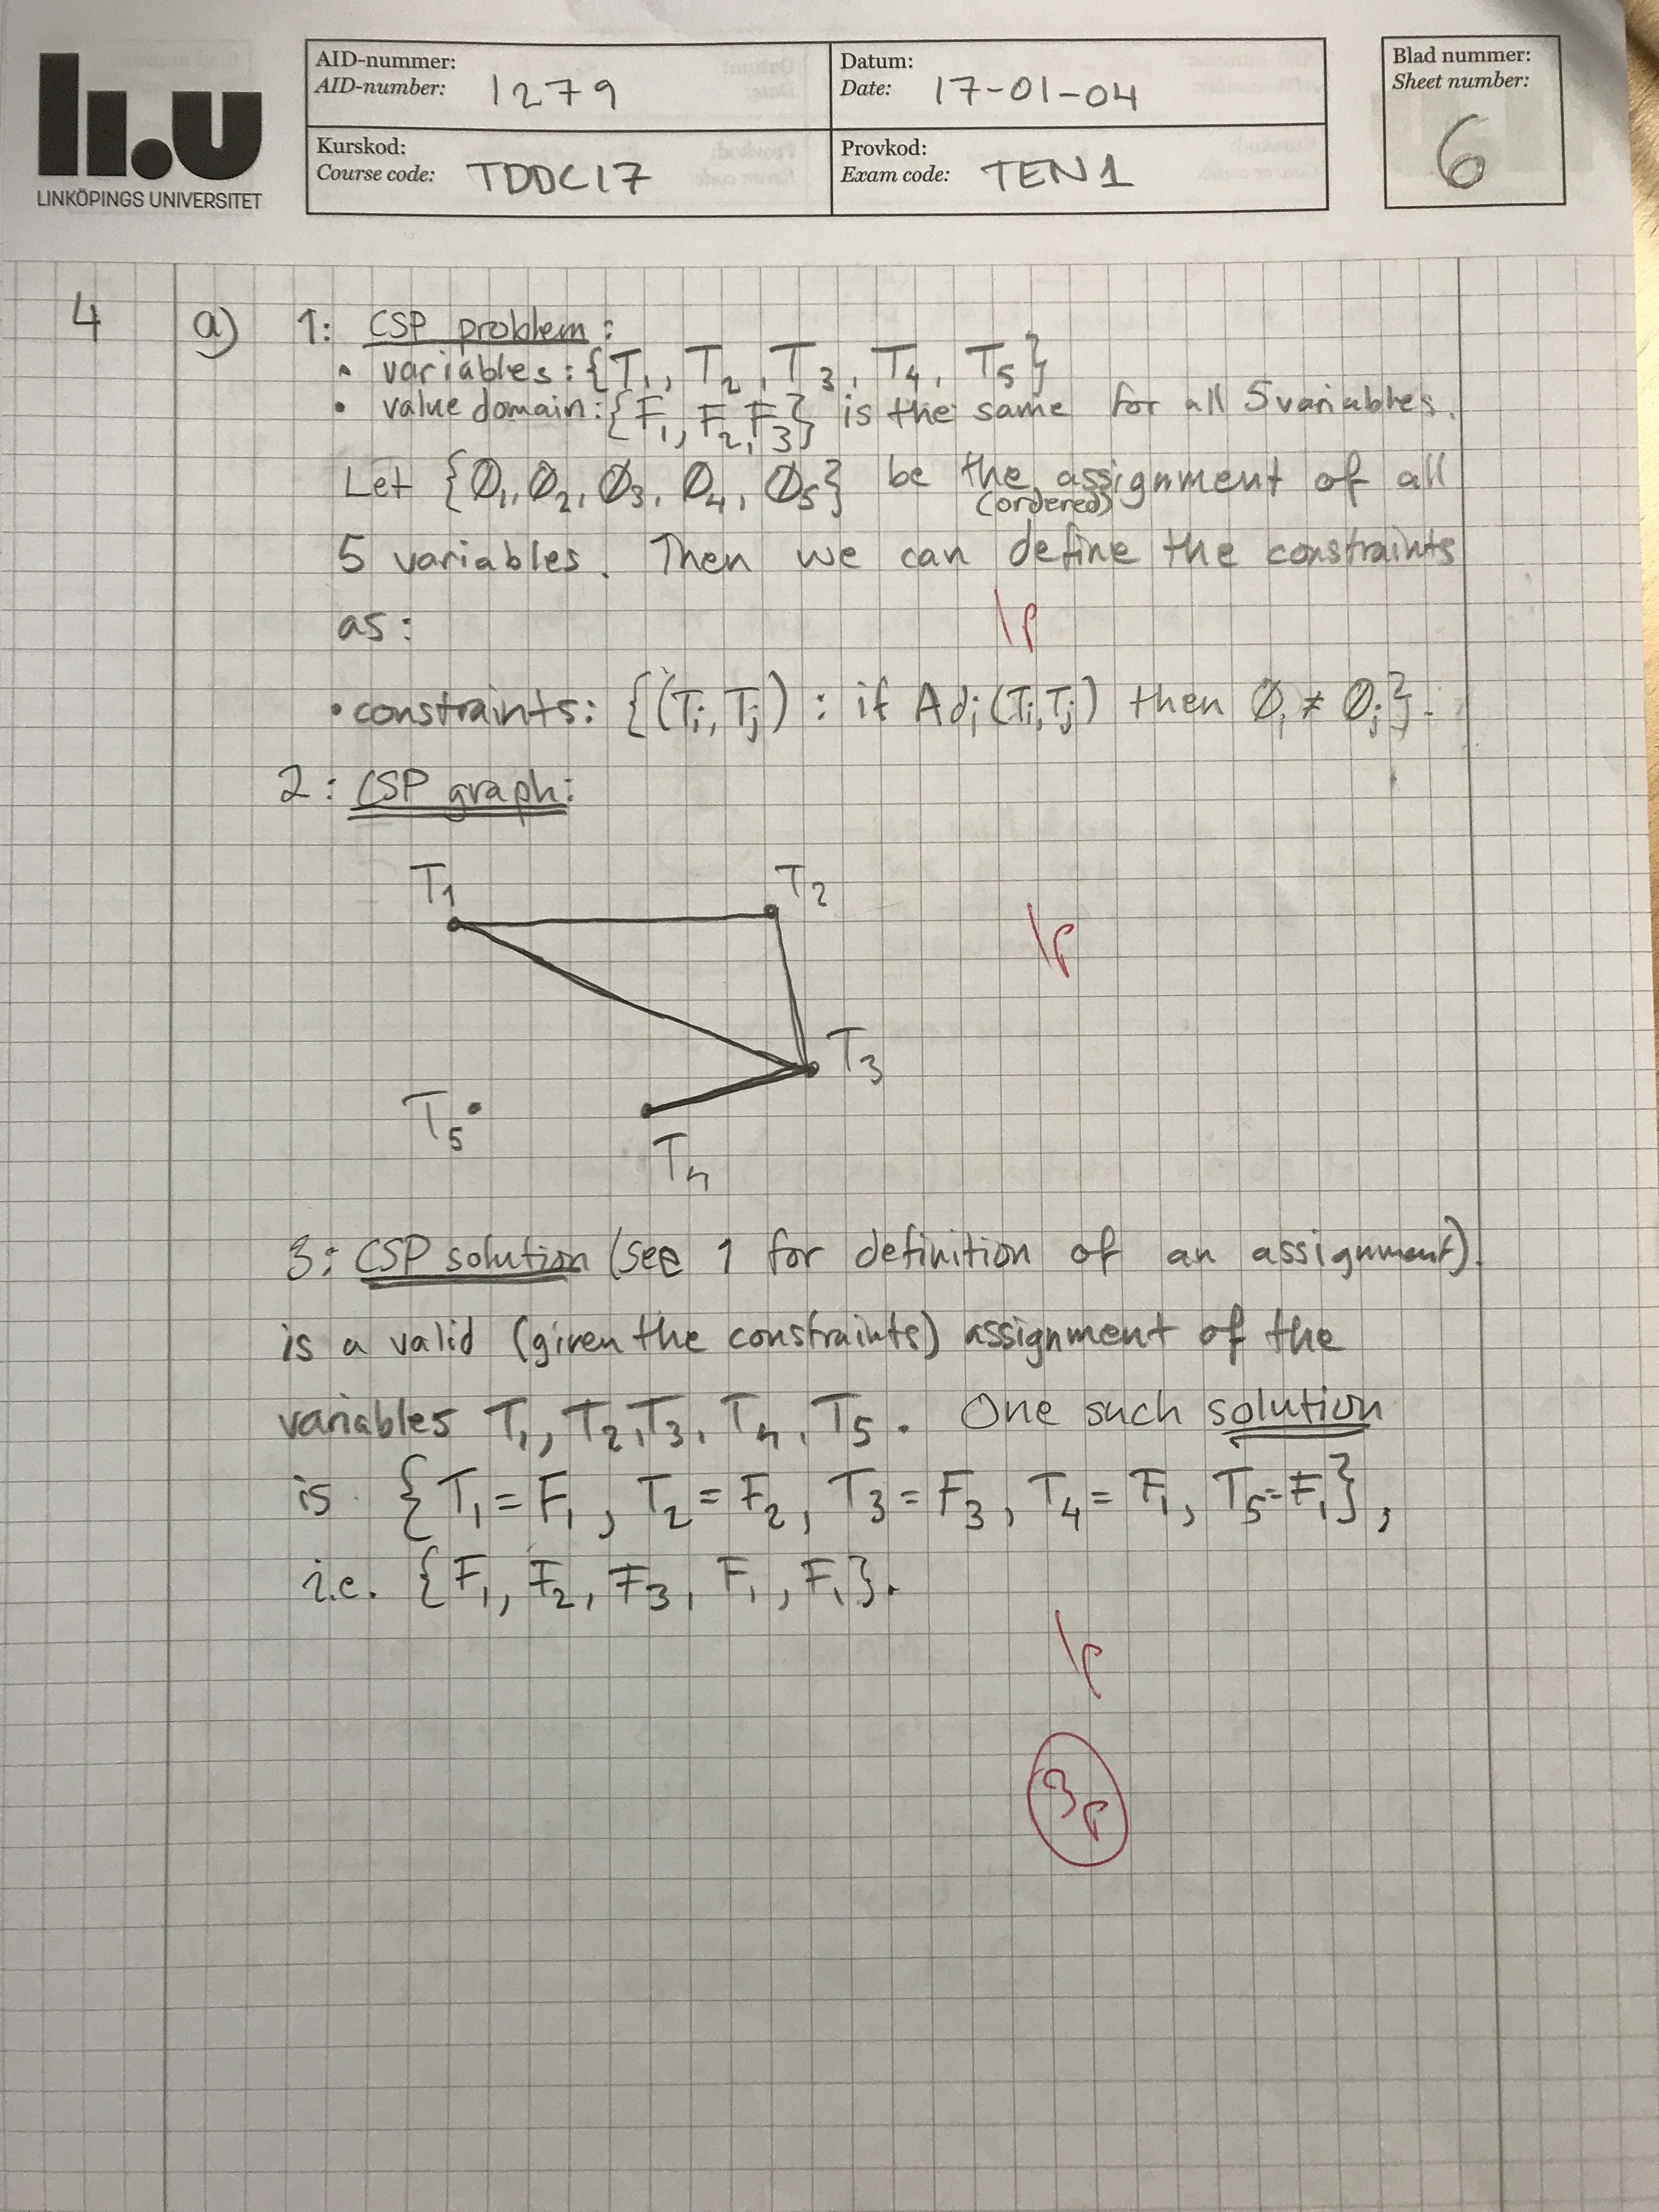 li.u
LINKÖPINGS UNIVERSITET
AID-nummer:
AID-number: 1279
Datum:
Date: 17-01-04
Kurskod:
Course code: TDDC17
Provkod:
Exam code: TEN1
Blad nummer:
Sheet number:
6
4 a) 1: CSP problem:
• variables: {T₁, T₂, T₃, T₄, T₅}
• value domain: {F₁, F₂, F₃} is the same for all 5 variables.
Let {Ø₁, Ø₂, Ø₃, Ø₄, Ø₅} be the assignment of all
(ordered)
5 variables. Then we can define the constraints
as:
1p
• constraints: {(Tᵢ, Tⱼ) : if Adj(Tᵢ, Tⱼ) then Øᵢ ≠ Øⱼ}.
2: CSP graph:
T₁
T₂
1p
T₃
T₅
T₄
3: CSP solution (see 1 for definition of an assignment)
is a valid (given the constraints) assignment of the
variables T₁, T₂, T₃, T₄, T₅. One such solution
is {T₁ = F₁, T₂ = F₂, T₃ = F₃, T₄ = F₁, T₅ = F₁},
i.e. {F₁, F₂, F₃, F₁, F₁}.
1p
3p